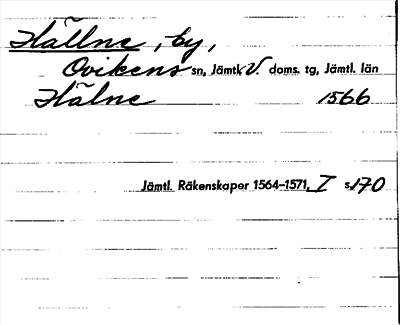 Hällne, by,
Ovikens sn, Jämtl. V. doms. tg, Jämtl. län
Hälne 1566
Jämtl. Räkenskaper 1564–1571, I s. 170